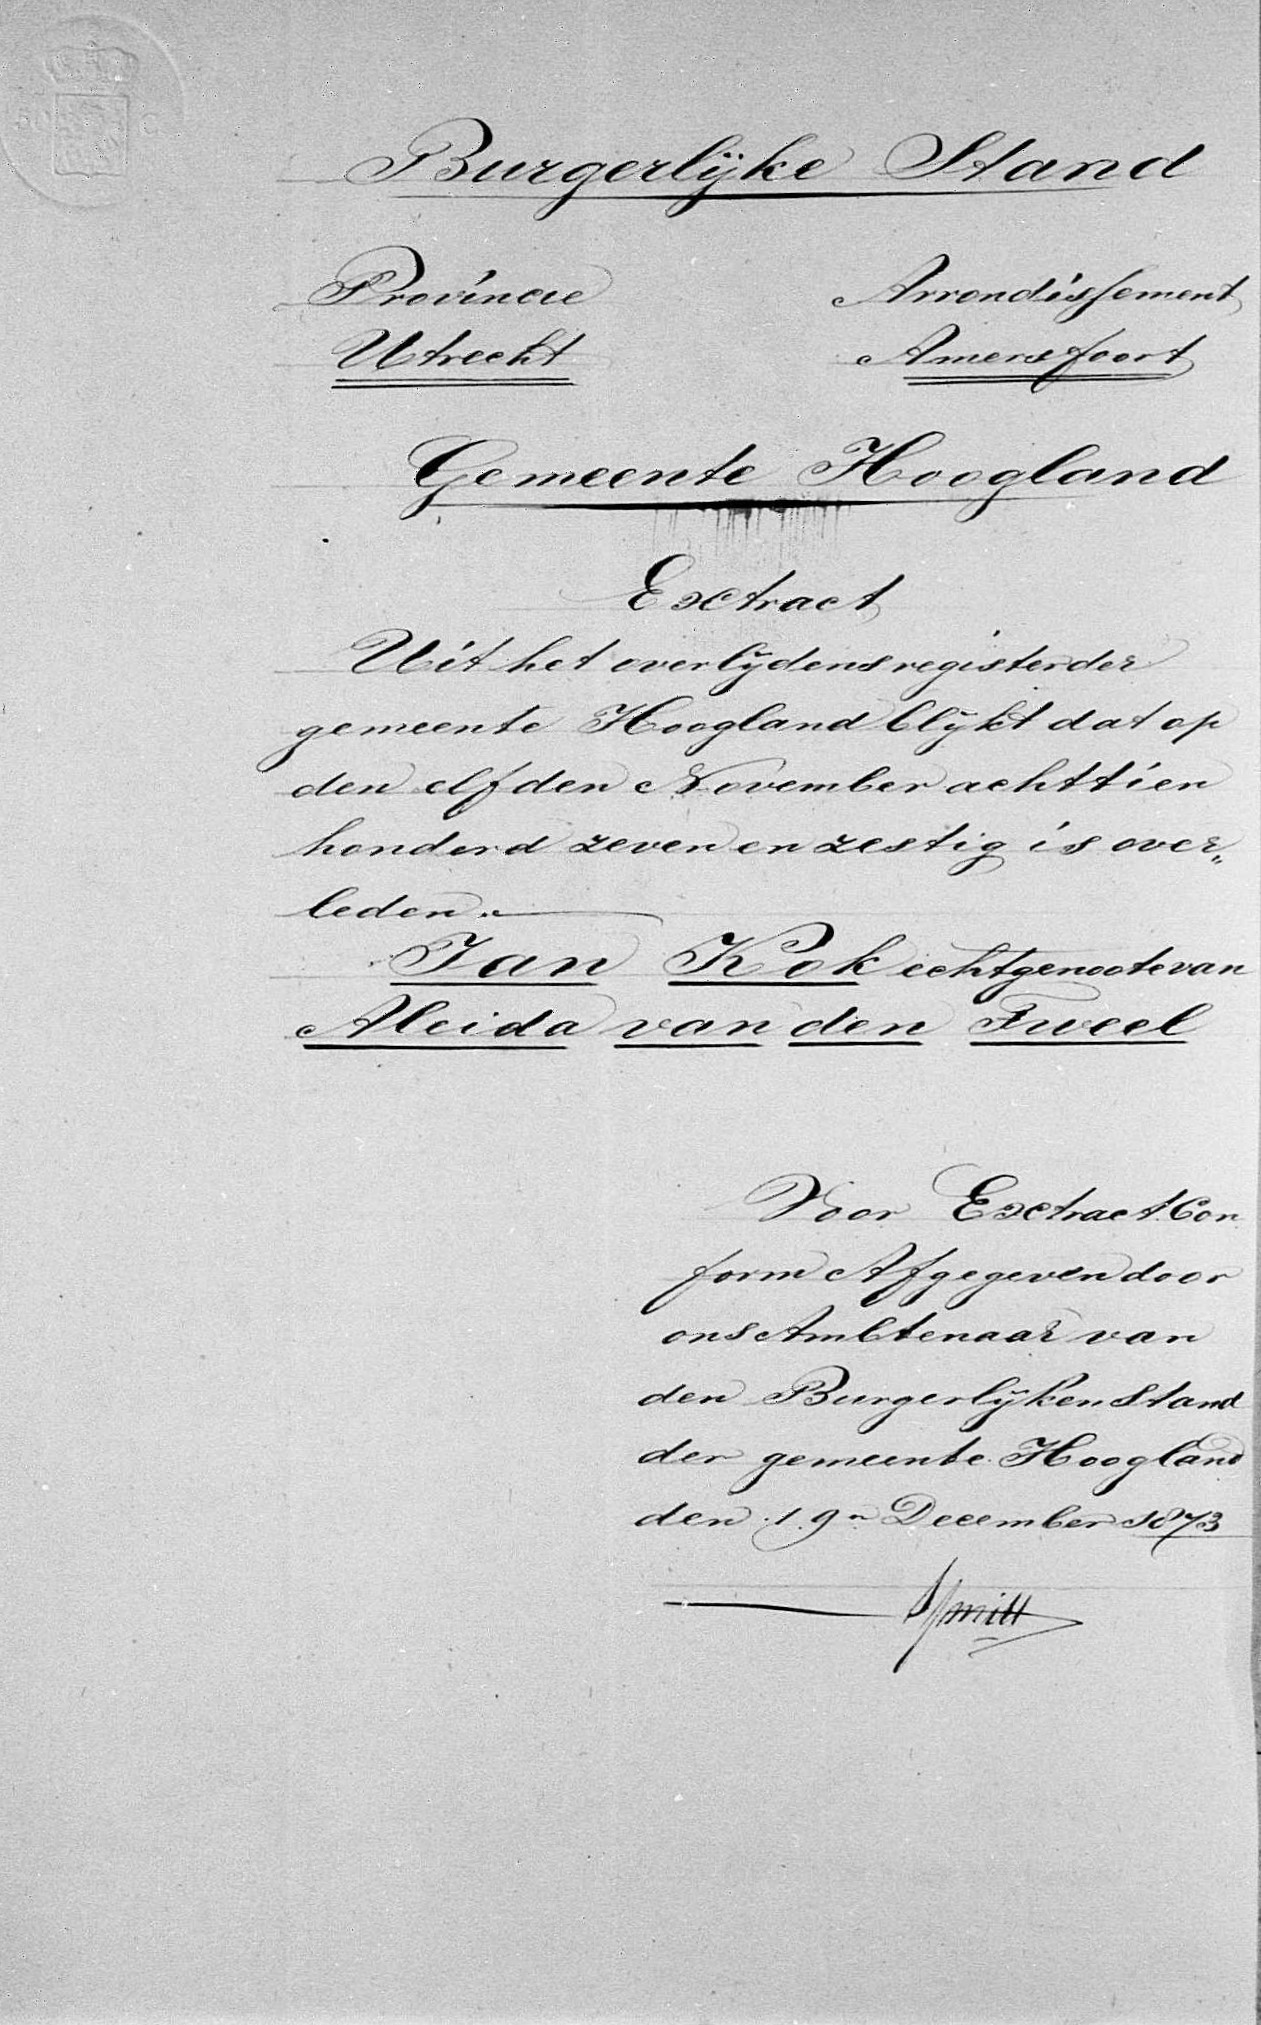 Burgerlÿke Stand
Provincie Arrondissement
Utrecht Amersfoort
Gemeente Hoogland
Exctract
Uit het overlÿdensregister der
gemeente Hoogland blÿkt dat op
den elfden November achttien
honderd zeven en zestig is over„
leden.
Jan Kok echtgenoote van
Aleida van den Tweel
Voor Exctract Con
form Afgegeven door
ons Ambtenaar van
den Burgerlÿken Stand
der gemeente Hoogland
den 19n December 1873